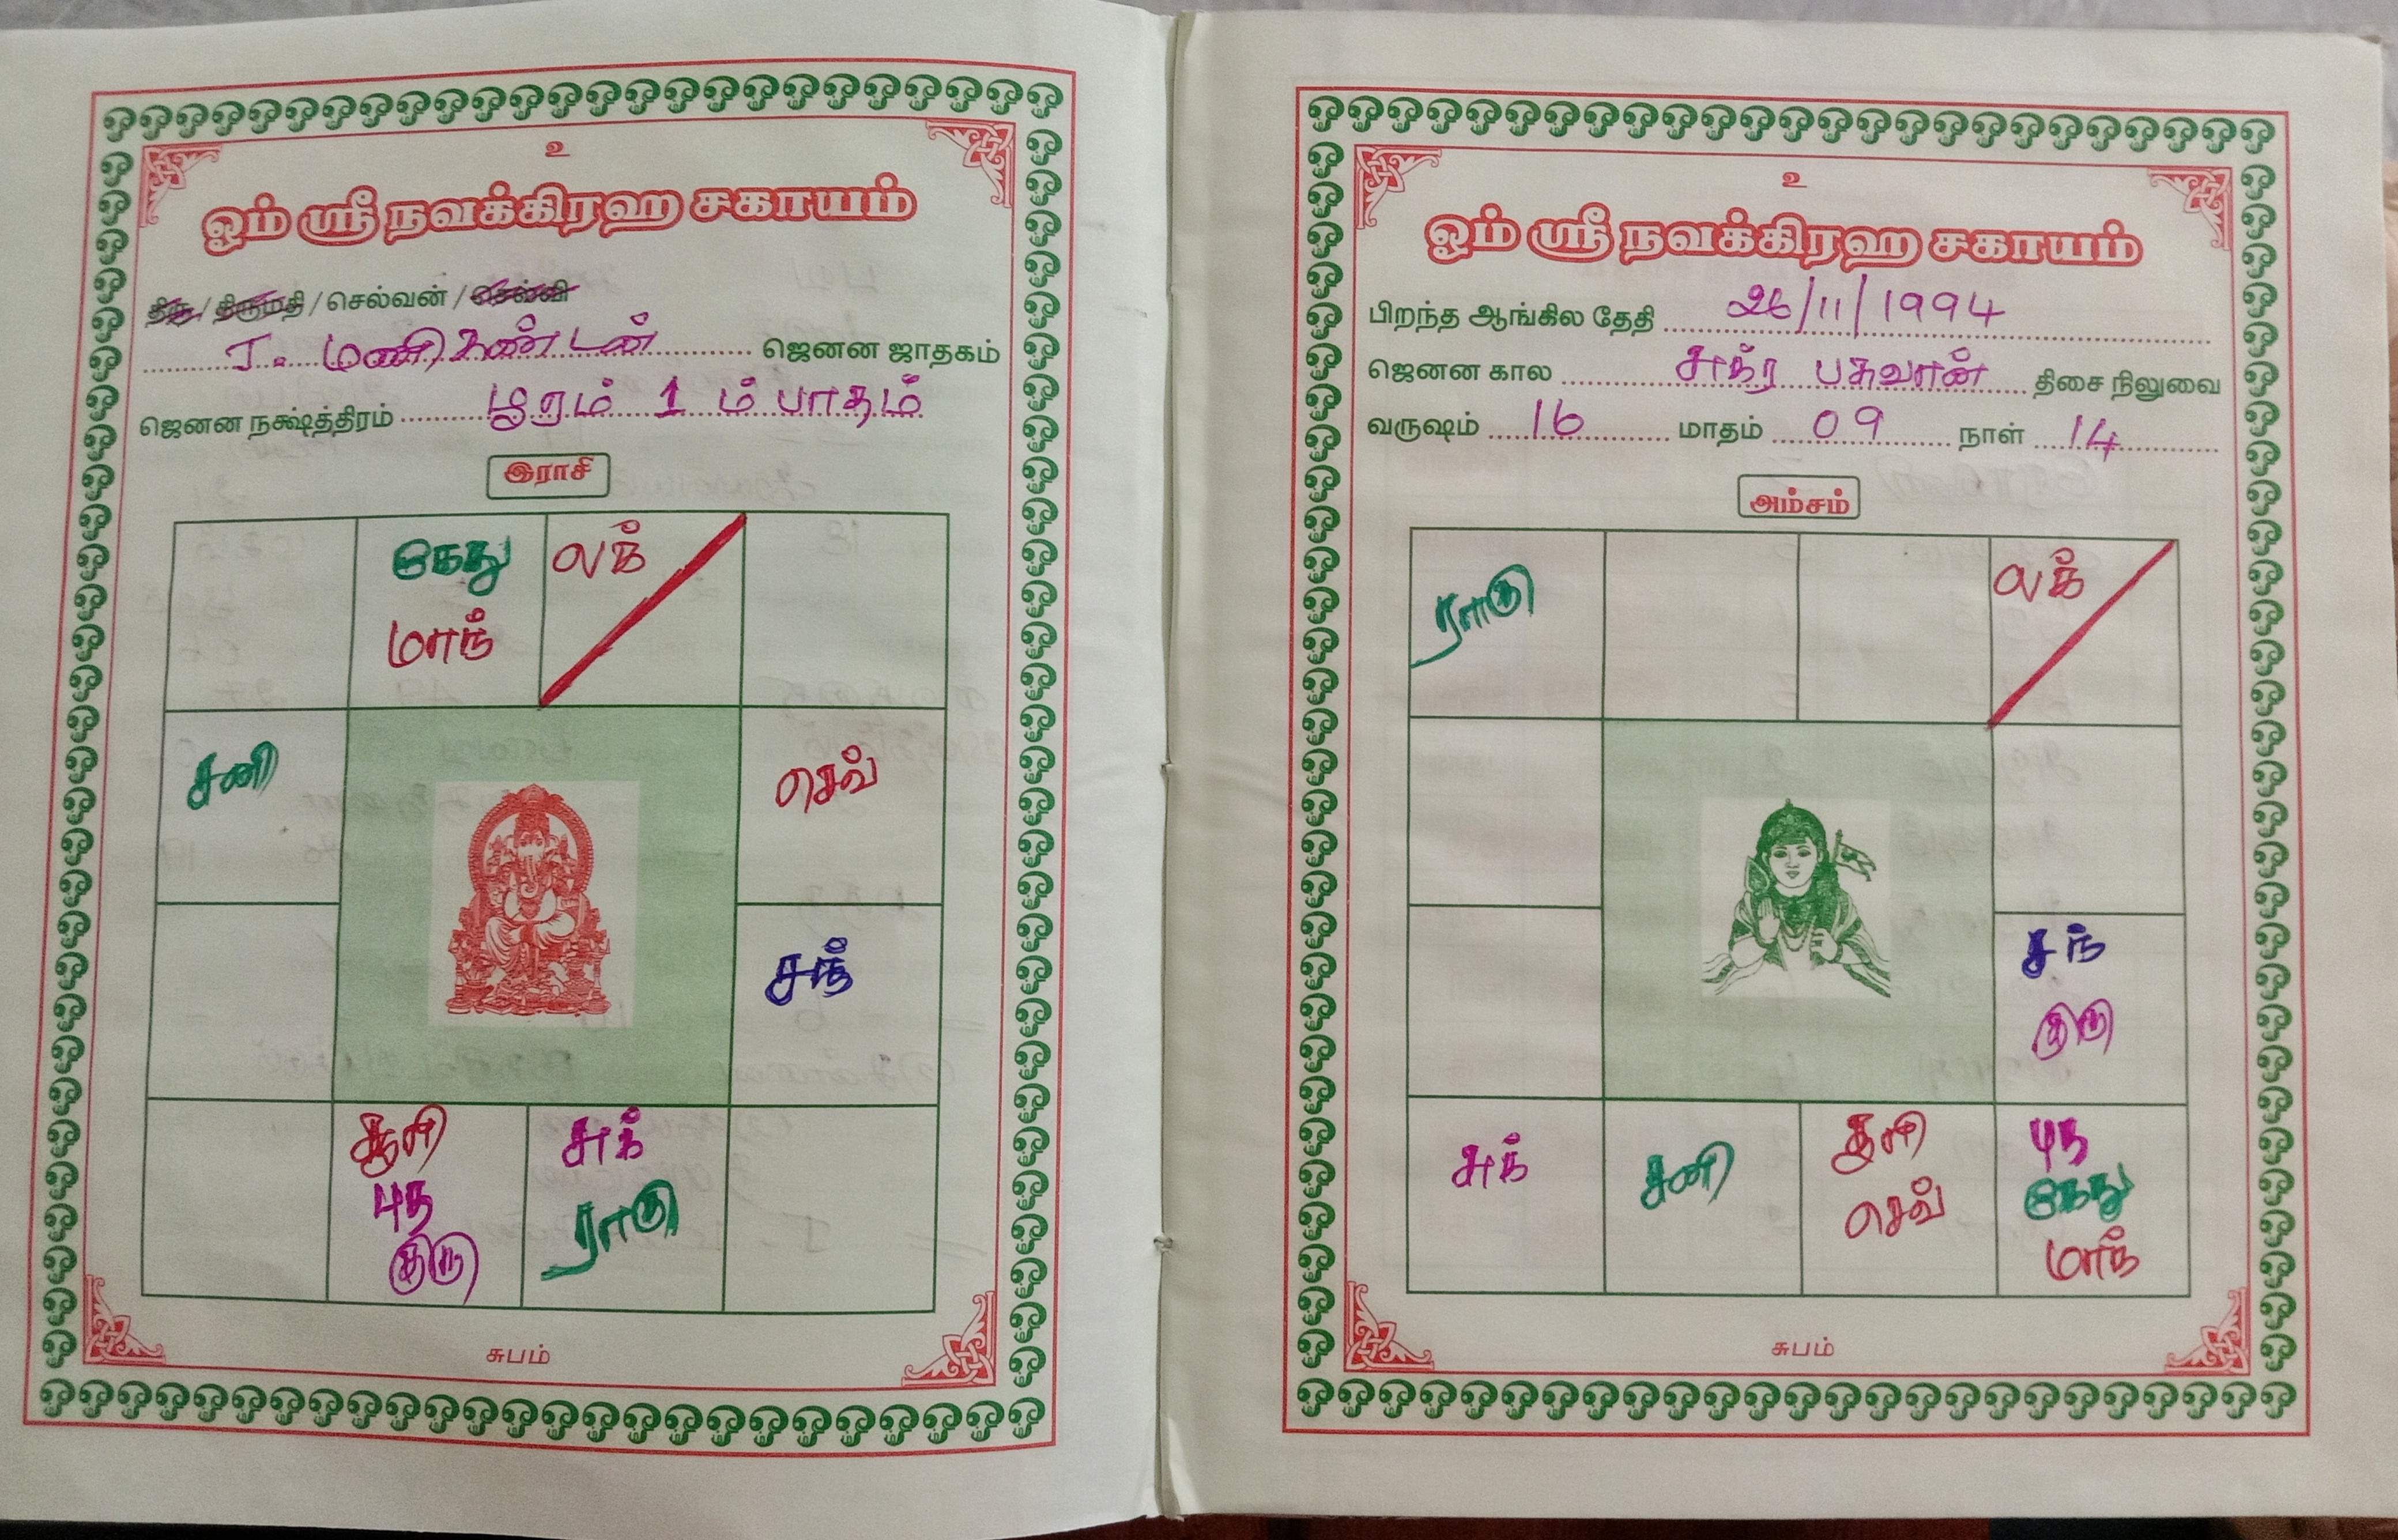 உ
ஓம் ஸ்ரீ நவக்கிரஹ சகாயம்
திரு / திருமதி / செல்வன் / செல்வி
J. மணிகண்டன் ஜெனன ஜாதகம்
ஜெனன நக்ஷத்திரம் பூரம் 1 ம் பாதம்
இராசி
கேது
மாந்
லக்
சனி
செவ்
சந்
சூரி
புத
குரு
சுக்
ராகு
சுபம்
உ
ஓம் ஸ்ரீ நவக்கிரஹ சகாயம்
பிறந்த ஆங்கில தேதி 26/11/1994
ஜெனன கால சுக்ர பகவான் திசை நிலுவை
வருஷம் 16 மாதம் 09 நாள் 14
அம்சம்
ராகு
லக்
சந்
குரு
சுக்
சனி
சூரி
செவ்
புத
கேது
மாந்
சுபம்